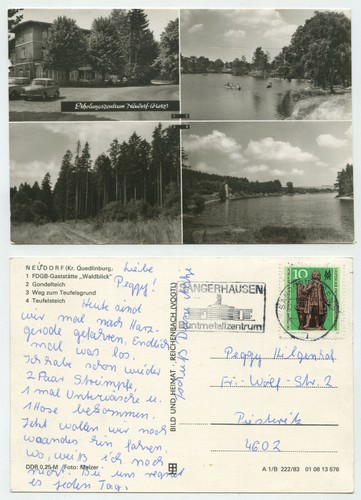 Erholungszentrum Neudorf (Harz)
1 2
3 4
NEUDORF (Kr. Quedlinburg)
1 FDGB-Gaststätte „Waldblick"
2 Gondelteich
3 Weg zum Teufelsgrund
4 Teufelsteich
Liebe
Peggy!
Heute sind
wir mal nach Harz-
gerode gefahren. Endlich
mal was los.
Ich habe schon wieder
2 Paar Strümpfe,
1 mal Unterwäsche u.
1 Hose bekommen.
Jetzt wollen wir noch
woanders hin fahren,
wo, weiß ich noch
nicht. Bei uns regnet
es jeden Tag.
DDR 0,25 M (Foto: Melzer)
BILD UND HEIMAT · REICHENBACH (VOGTL)
SANGERHAUSEN
Buntmetallzentrum
10
DDR
Peggy
Fr.-Wolf-Str. 2
Piesteritz
4602
A 1/B 222/83 01 08 13 576